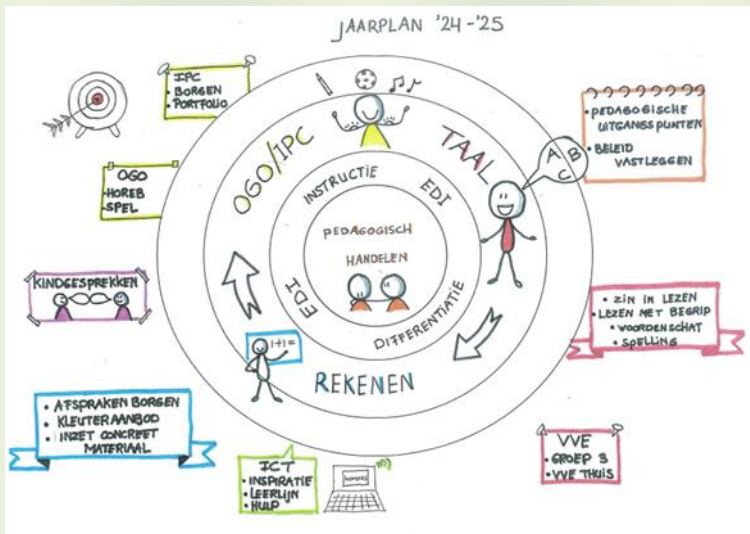 JAARPLAN '24-'25
IPC
• BORGEN
• PORTFOLIO
OGO
• HOREB
• SPEL
KINDGESPREKKEN
• AFSPRAKEN BORGEN
• KLEUTERAANBOD
• INZET CONCREET
MATERIAAL
ICT
• INSPIRATIE
• LEERLIJN
• HULP
OGO/IPC
TAAL
REKENEN
1+1=
INSTRUCTIE
EDI
EDI
DIFFERENTIATIE
PEDAGOGISCH
HANDELEN
A B
C
• PEDAGOGISCHE
UITGANGSPUNTEN
• BELEID
VASTLEGGEN
• ZIN IN LEZEN
• LEZEN MET BEGRIP
• WOORDENSCHAT
• SPELLING
VVE
• GROEP 3
• VVE THUIS